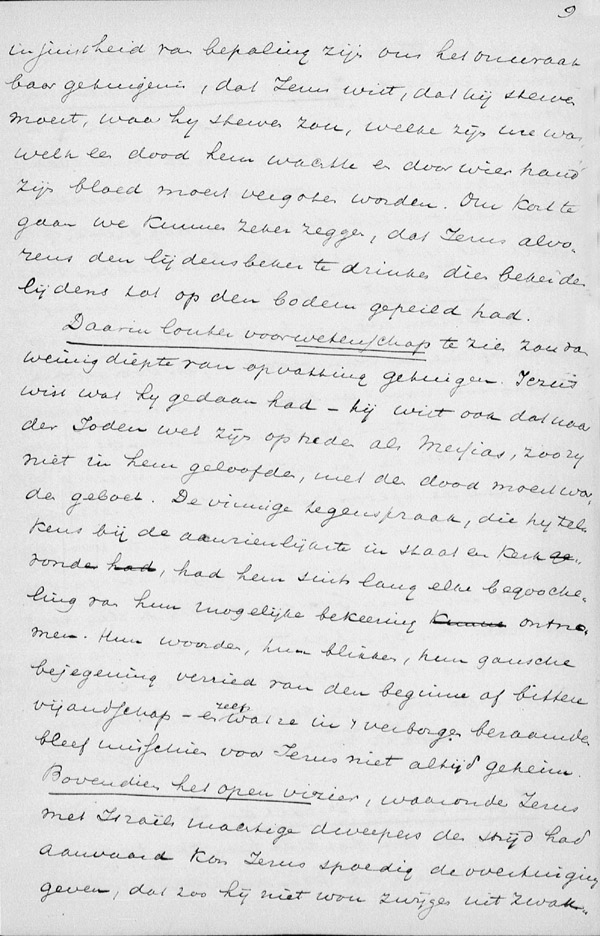 9
in juistheid van bepaling zijn ons het onwraak
baar getuigenis, dat Jezus wist, dat hij sterven
moest, waar hy sterven zou, welke zijn ure was
welk een dood hem wachtte en door wier hand
zijn bloed moest vergoten worden. Om kort te
gaan we kunnen zeker zeggen, dat Jezus alvo-
rens den lijdensbeker te drinken dien beker des
lijdens tot op den bodem gepeild had.
Daarin louter voorwetenschap te zien zou van
weinig diepte van opvatting getuigen. Jezus
wist wat hy gedaan had – hij wist ook dat naar
der Joden wet zijn optreden als Messias, zoo zy
niet in hem geloofden, met den dood moest wor
den geboet. De vinnige tegenspraak, die hy tel-
kens bij de aanzienlijkste in staat en kerk ge-
vonden had, had hem sints lang elke begooche-
ling van hun mogelijke bekeering kunnen ontno-
men. Hun woorden, hun blikken, hun gansche
bejegening verried van den beginne af bitteren
vijandschap – en zelfs wat ze in 't verborgen beraamden
bleef misschien voor Jezus niet altijd geheim.
Bovendien het open vizier, waaronder Jezus
met Israëls machtige dweepers den strijd had
aanvaard kon Jezus spoedig de overtuiging
geven, dat zoo hij niet wou zwijgen uit zwak-